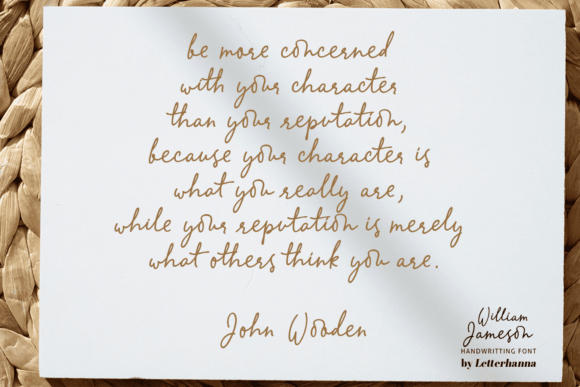 be more concerned
with your character
than your reputation,
because your character is
what you really are,
while your reputation is merely
what others think you are.
John Wooden
William
Jameson
HANDWRITTING FONT
by Letterhanna